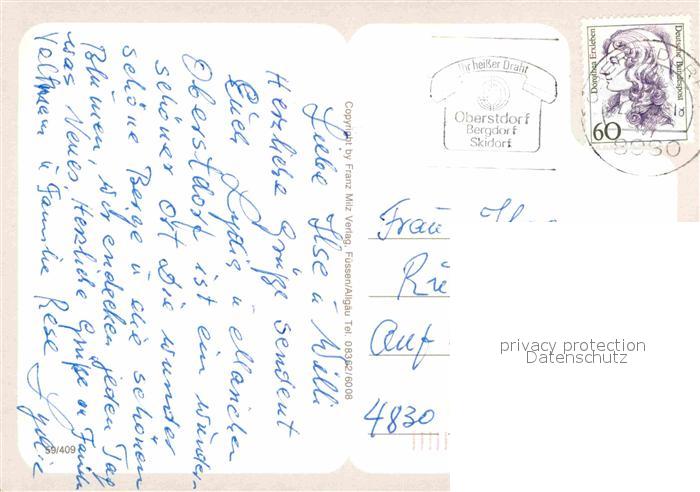 Liebe Ilse u Willi
Herzliche Grüße sendent
Euch Lydia u
Oberstdorf ist ein wunder-
schöner Ort Die wunder
schöne Berge u die schönen
Blumen, wir endecken jeden Tag
was Neues, Herzliche Grüße an Familie
u Familie Rese Lydia
59/409
Copyright by Franz Milz Verlag, Füssen/Allgäu Tel. 08362/6008
Ihr heißer Draht
Oberstdorf
Bergdorf
Skidorf
Dorothea Erxleben
Deutsche Bundespost
60
8980
Frau Ilse
Auf
4830
privacy protection
Datenschutz